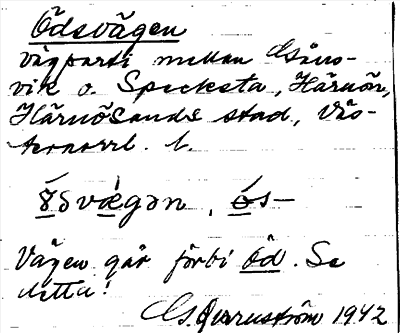 Ödsvägen
Vägparti mellan Gåns-
vik o. Specksta, Härnön,
Härnösands stad, Väs-
ternorrl. l.
ȣ̄svǽgən, ós-
Vägen går förbi Öd. Se
detta!
1942